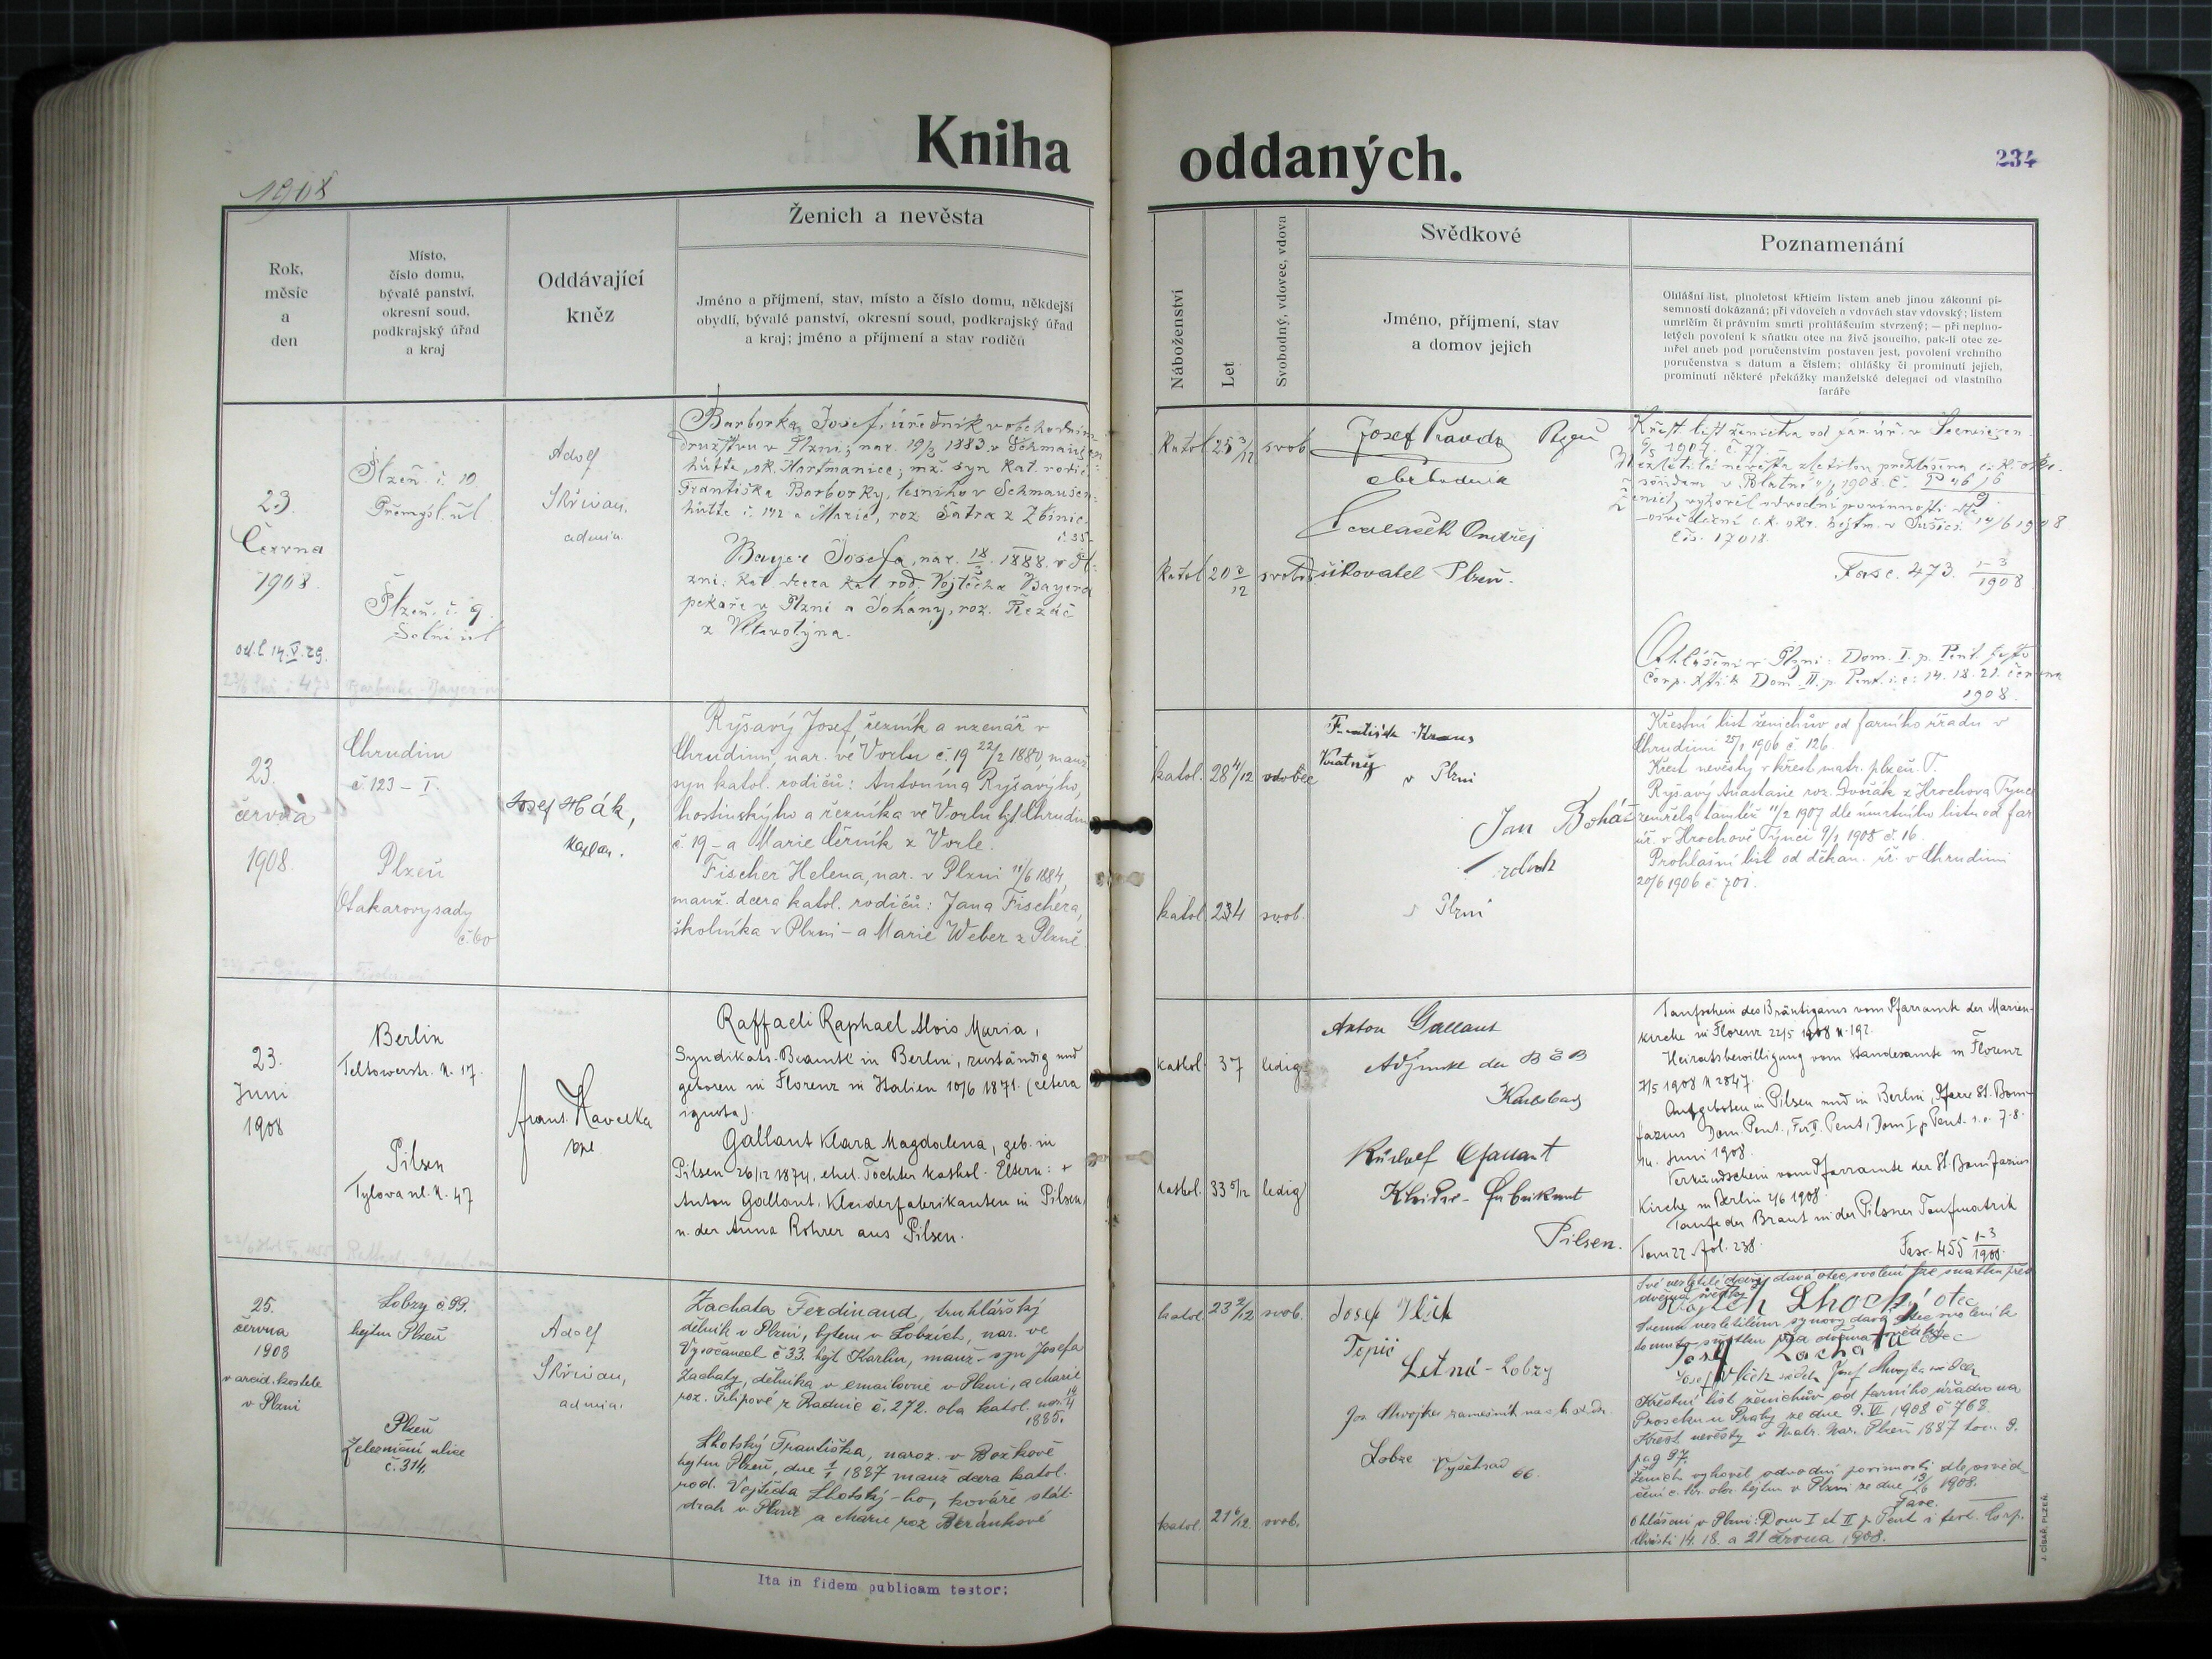 Kniha
oddaných.
234
1908
Rok,
měsíc
a
den
Místo,
číslo domu,
bývalé panství,
okresní soud,
podkrajský úřad
a kraj
Oddávající
kněz
Ženich a nevěsta
Jméno a příjmení, stav, místo a číslo domu, někdejší
obydlí, bývalé panství, okresní soud, podkrajský úřad
a kraj; jméno a příjmení a stav rodičů
Náboženství
Let
Svobodný, vdovec, vdova
Svědkové
Jméno, příjmení, stav
a domov jejich
Poznamenání
Ohlášní list, plnoletost křticím listem aneb jinou zákonní pí-
semností dokázaná; při vdovcích a vdovách stav vdovský; listem
umrlčím či právním smrti prohlášením stvrzený; — při neplno-
letých povolení k sňatku otce na živě jsoucího, pak-li otec ze-
mřel aneb pod poručenstvím postaven jest, povolení vrchního
poručenstva s datum a číslem; ohlášky či prominutí jejich,
prominutí některé překážky manželské delegací od vlastního
faráře
23
Června
1908.
od.l 14.V.29.
Plzeň č. 10.
Přemysl. ul.
Plzeň, č. 9
Solní ul
Adolf
Skřivan,
admin.
Borborka Josef, úředník v obchodním
družstvu v Plzni; nar. 19/3 1883 v Schmausen
hütte, ok. Hartmanice; mž. syn kat. rodič.
Františka Borborky, lesního v Schmausen-
hütte č. 142 a Marie, roz. Šatra z Zbinic
č 35-
Bayer Josefa, nar. 18/3 1888. v Pl-
zni; kat. dcera kat. rod. Vojtěcha Bayera
pekaře v Plzni a Johany, roz. Řezáč
z Vltavotýna.
Katol
25 3/12
svob
Katol
20 3/12
svobod
Josef Pravda
obchodník
Ondřej
Plzeň.
Křest. list ženicha od far. úř. v
1907. č. 77.
Fasc. 473. 1-3/1908
Ohlášení v Plzni: Dom. I. p. Pent. festo
Corp. Xti & Dom. II. p. Pent. i. e: 14. 18. 21. června
1908.
23.
června
1908.
Chrudim
č. 123 – I.
Plzeň
Otakarovy sady
č. 60
Josef Hák,
kaplan.
Ryšavý Josef, řezník a uzenář v
Chrudimi, nar. ve Vorlu č. 19 22/2 1880, manž.
syn katol. rodičů: Antonína Ryšavýho,
hostinskýho a řezníka ve Vorlu hjt. Chrudim
č. 19 – a Marie Černík z Vorle.
Fischer Helena, nar. v Plzni 11/6 1884,
manž. dcera katol. rodičů: Jana Fischera,
školníka v Plzni – a Marie Weber z Plzně.
katol.
28 4/12
vdovec
katol.
svob.
František Kraus
v Plzni
Jan Boháč
v Plzni
Křestní list ženichův od farního úřadu v
Chrudimi 25/1 1906 č. 126.
Křest nevěsty v křest. matr. plzeň. T.
Ryšavý Anastasie roz. Dvořák z Hrochova Týnce
zemřela tamtéž 11/2 1907 dle úmrtního listu od far.
úř. v Hrochově Týnci 9/2 1908 č. 16.
Prohlašní list od děkan. úř. v Chrudimi
20/6 1906 č. 701.
23.
Juni
1908
Berlin
Teltowerstr. N. 17.
Pilsen
Tylova ul. N. 47
Franz Havelka
Raffaeli Raphael Alois Maria,
Syndikats-Beamte in Berlin, zuständig und
geboren in Florenz in Italien 10/6 1871. (cetera
ignota).
Gallant Klara Magdalena, geb. in
Pilsen 26/12 1874, ehel. Tochter kathol. Eltern: +
Anton Gallant, Kleiderfabrikanten in Pilsen,
u. der Anna Rohrer aus Pilsen.
kathol.
37
ledig
kathol.
33 5/12
ledig
Anton Gallant
Adjunkt der B E B
Karlsbad
Rudolf Gallant
Kleider-Fabrikant
Pilsen.
Taufschein des Bräutigams vom Pfarramte der Marien-
kirche in Florenz 22/5 1908 N. 192.
Heiratsbewilligung vom Standesamte in Florenz
2/5 1908 N 2847.
Aufgeboten in Pilsen und in Berlin, Pfarre St. Boni-
fazius Dom. Pent., Fer. II. Pent., Dom I p. Pent. i. e. 7. 8.
14. Juni 1908.
Verkündschein vom Pfarramte der St. Bonifazius
Kirche in Berlin 2/6 1908.
Taufe der Braut in der Pilsner Taufmatrik
Tom 22. fol. 238.
Fasc. 455 1-3/1908.
25.
června
1908
v arcid. kostele
v Plzni
Lobzy č 99.
hejtm Plzeň
Plzeň
Železniční ulice
č. 314.
Adolf
Skřivan,
admin.
Zachata Ferdinand, truhlářský
dělník v Plzni, bytem v Lobzích, nar. ve
Vysočanech č 33. hejt Karlín, manž. syn Josefa
Zachaty, dělníka v emailovně v Plzni, a Marie
roz. Filipové z Radnic č. 272. oba katol. nar. 14/4
1885.
Lhotský Františka, naroz. v Božkově
hejtm Plzeň, dne 1/1 1887 manž dcera katol.
rod. Vojtěcha Lhotský-ho, kováře stát.
drah v Plzni a Marie roz Beránkové
katol.
23 2/12
svob.
katol.
21 6/12.
svob.
Josef Vlček
Topič
Letná - Lobzy
Jos. Hvojka
Lobzy Vyšehrad 66.
Své nezletilé dceři dává otec svolení ke sňatku před
dvěma svědky
Vojtěch Lhocký otec
Svému nezletilému synovy dává otec svolení k
tomuto sňatku před dvěma svědky
Josef Zachata otec
Josef Vlček svědek Josef Hvojka svědek
Křestní list ženichův od farního úřadu na
Proseku u Prahy ze dne 9. VI 1908 č 768.
Křest nevěsty v Matr. Nar. Plzeň 1887 tom. 9.
pag 97.
Ženich vyhověl odvodní povinnosti dle osvěd-
čení c. kr. okr. hejtm v Plzni ze dne 13/6 1908.
Fasc.
Ohlášeni v Plzni: Dom I et II p. Pent i fest. Corp.
Christi 14. 18. a 21 června 1908.
Ita in fidem publicam testor:
J. CÍSAŘ, PLZEŇ.